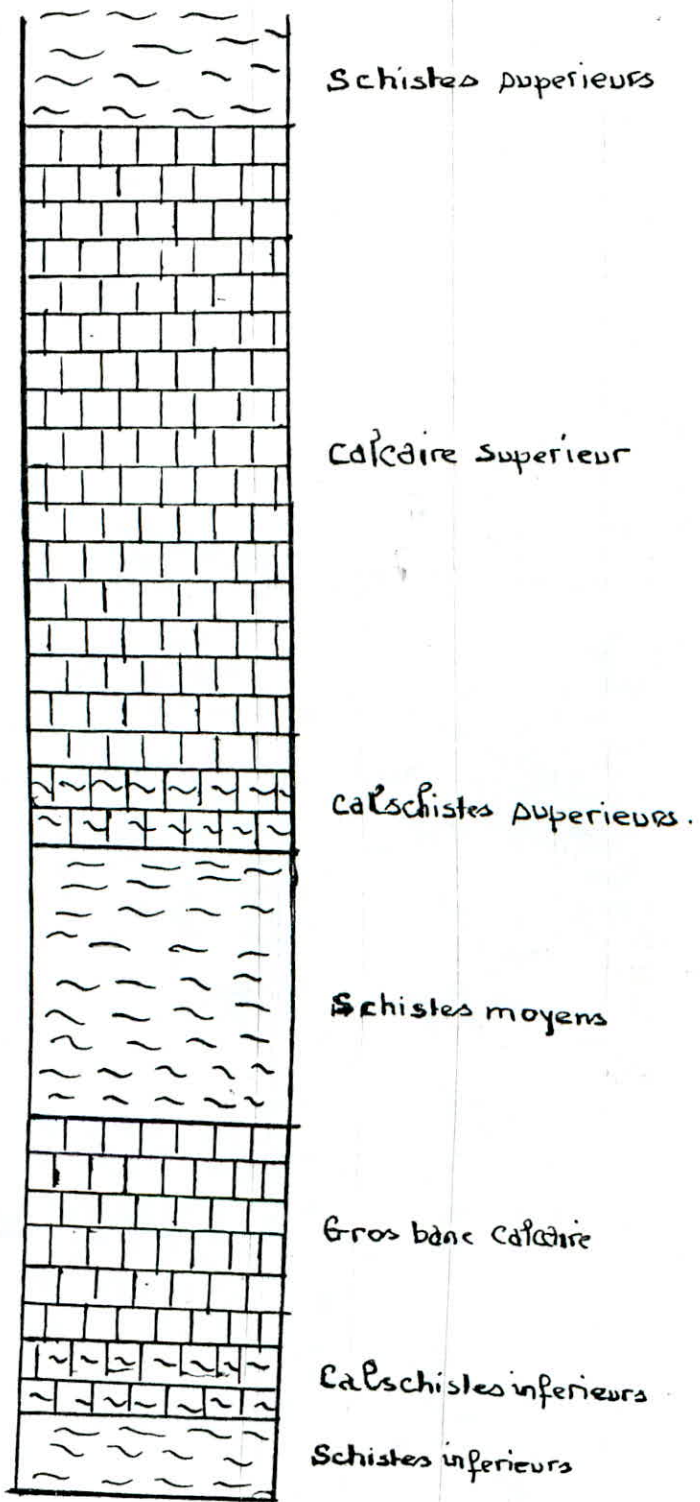 Schistes superieurs
Calcaire superieur
Calschistes superieurs.
Schistes moyens
Gros banc Calcaire
Calschistes inferieurs
Schistes inferieurs